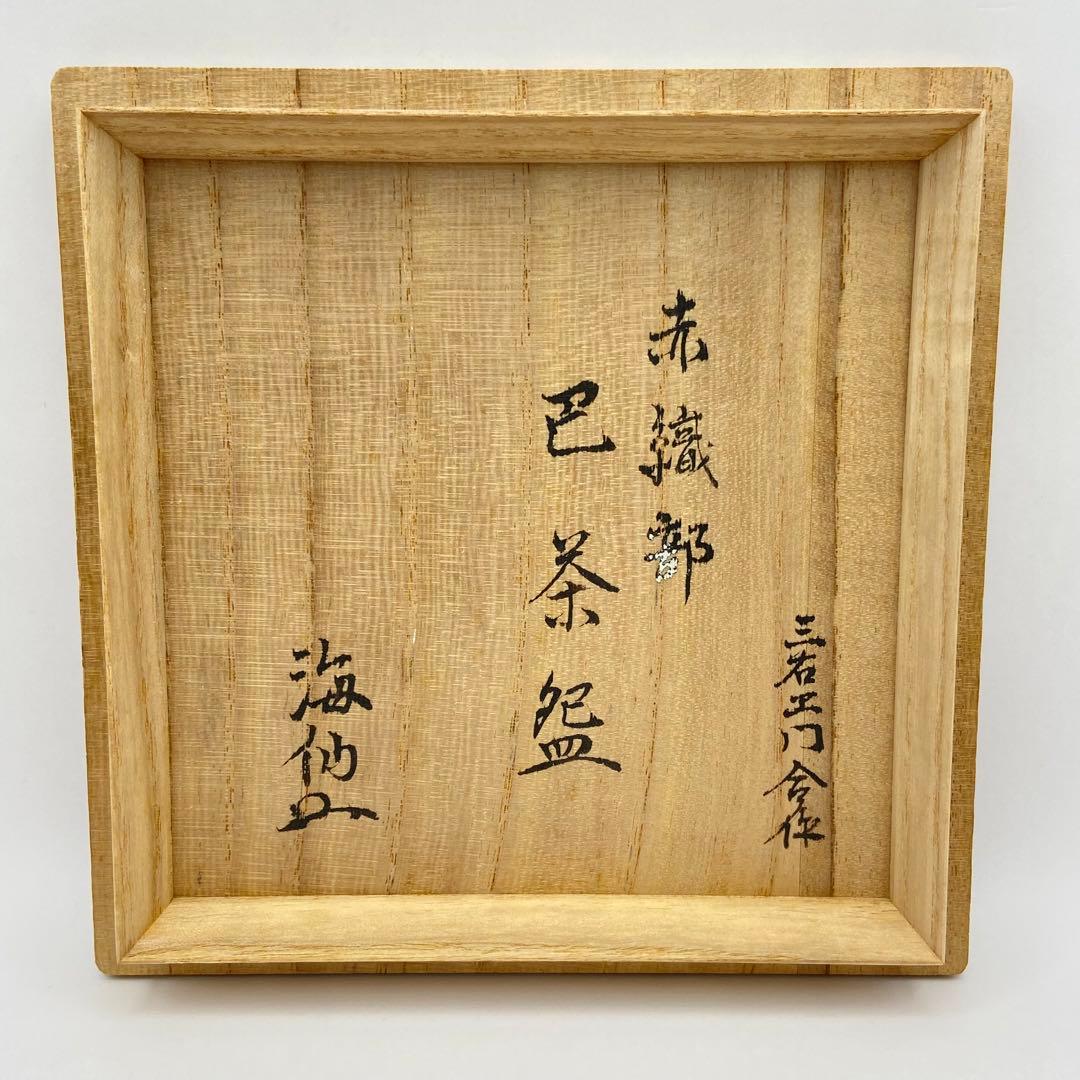 三右エ门合作
赤織部
巴茶盌
海仙